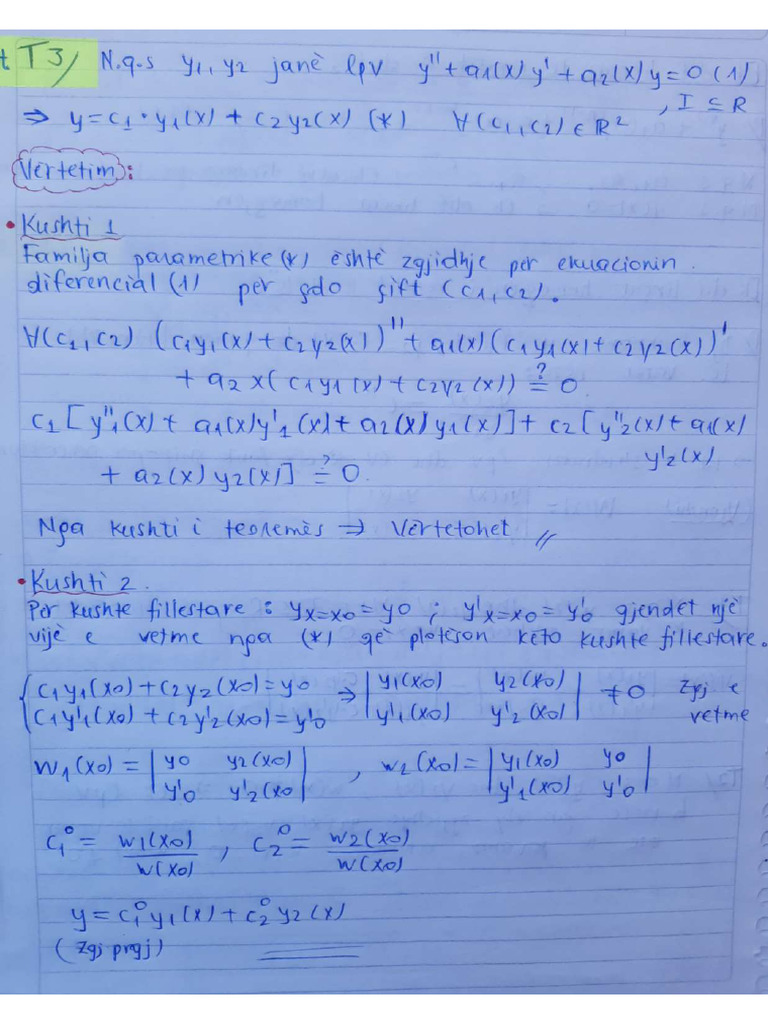 t T3/ N.q.s y1, y2 janë lpv y''+a1(x)y'+a2(x)y=0 (1)
, I ⊆ R
⇒ y=c1·y1(x)+c2y2(x) (*) ∀(c1,c2)∈R²
Vërtetim:
• Kushti 1
Familja parametrike (*) është zgjidhje për ekuacionin
diferencial (1) për çdo çift (c1,c2).
∀(c1,c2) (c1y1(x)+c2y2(x))''+a1(x)(c1y1(x)+c2y2(x))'
+ a2x(c1y1(x)+c2y2(x)) ?= 0
c1[y''1(x)+a1(x)y'1(x)+a2(x)y1(x)]+c2[y''2(x)+a1(x)
y'2(x)
+ a2(x)y2(x)] ?= 0.
Nga kushti i teoremës ⇒ Vërtetohet //
• Kushti 2.
Për kushte fillestare : yx=x0=y0 ; y'x=x0=y'0 gjendet një
vijë e vetme nga (*) që plotëson këto kushte fillestare.
{c1y1(x0)+c2y2(x0)=y0 ⇒ |y1(x0) y2(x0)| ≠0 Zgj e
{c1y'1(x0)+c2y'2(x0)=y'0 |y'1(x0) y'2(x0)| vetme
W1(x0)= |y0 y2(x0)| , W2(x0)= |y1(x0) y0|
|y'0 y'2(x0| |y'1(x0) y'0|
c1⁰= W1(x0) , c2⁰= W2(x0)
W(x0) W(x0)
y=c1⁰y1(x)+c2⁰y2(x)
(zgj prgj)